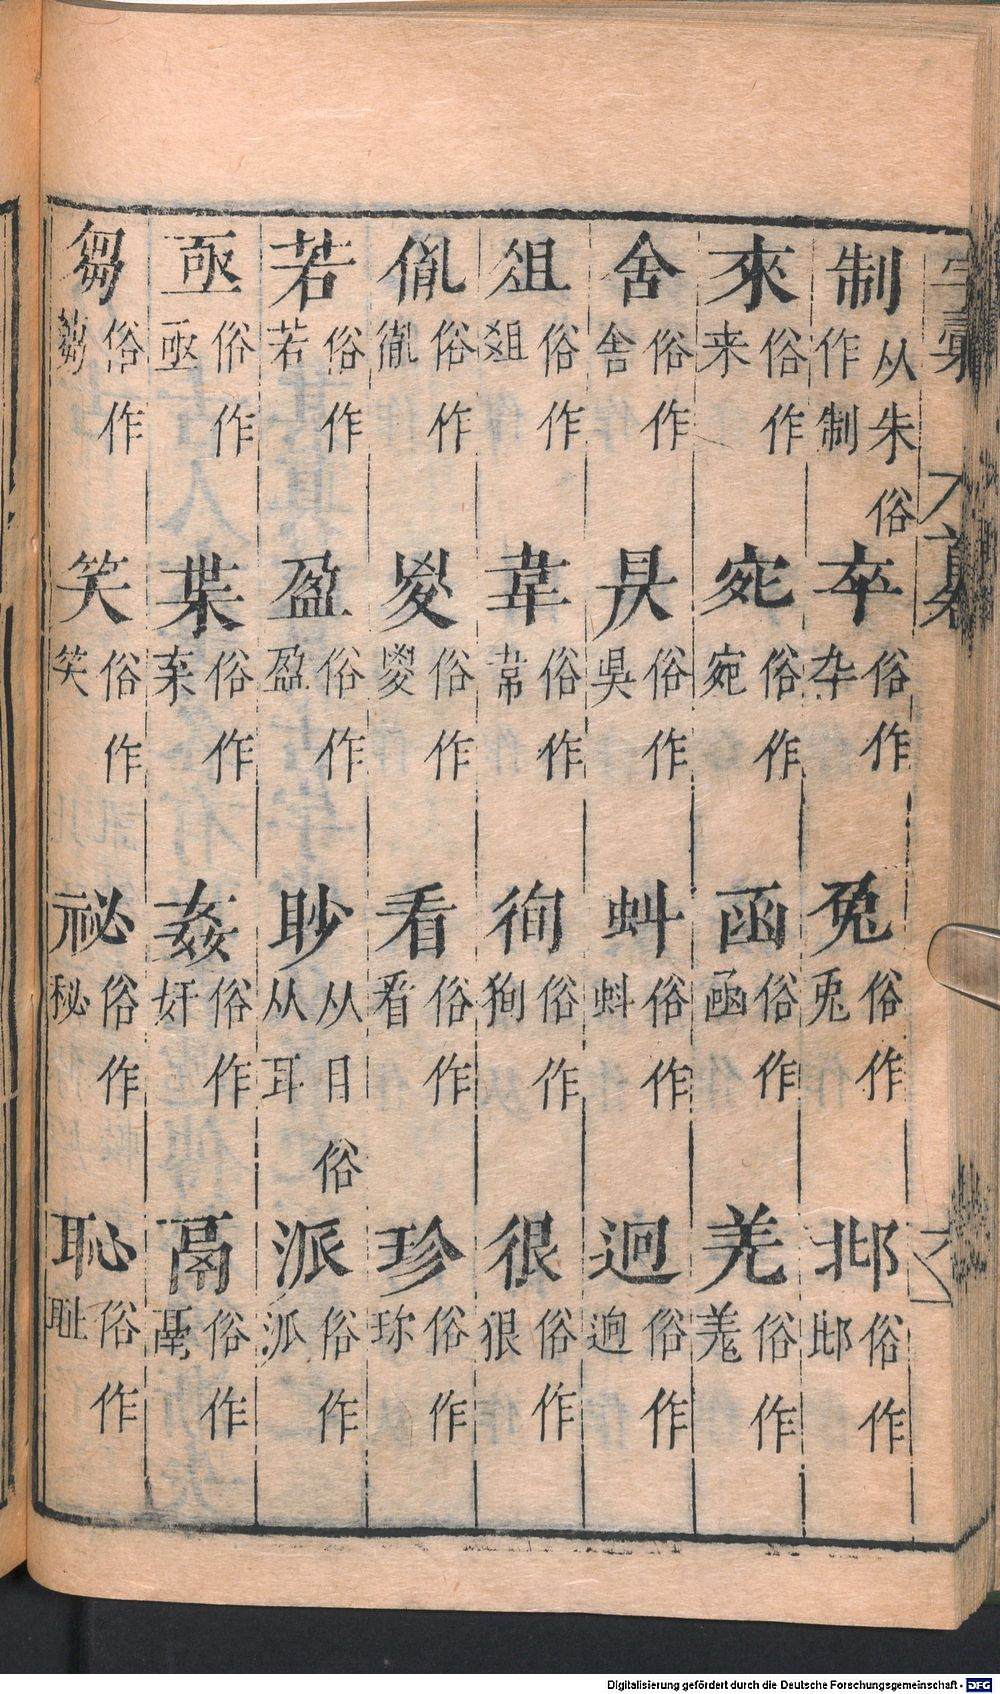 字彙
制 从朱俗作制 卒 俗作卆 兔 俗作兎 邶 俗作邶
來 俗作来 宛 俗作宛 函 俗作凾 羌 俗作羗
舍 俗作舎 吳 俗作吳 虯 俗作蚪 迥 俗作逈
俎 俗作爼 韋 俗作帇 徇 俗作狥 很 俗作狠
胤 俗作㣧 叟 俗作 看 俗作㸔 珍 俗作珎
若 俗作若 盈 俗作盁 眇 从目俗从耳 派 俗作泒
亟 俗作 枼 俗作 姦 俗作奸 鬲 俗作
芻 俗作蒭 笑 俗作 祕 俗作秘 恥 俗作耻
Digitalisierung gefördert durch die Deutsche Forschungsgemeinschaft - DFG